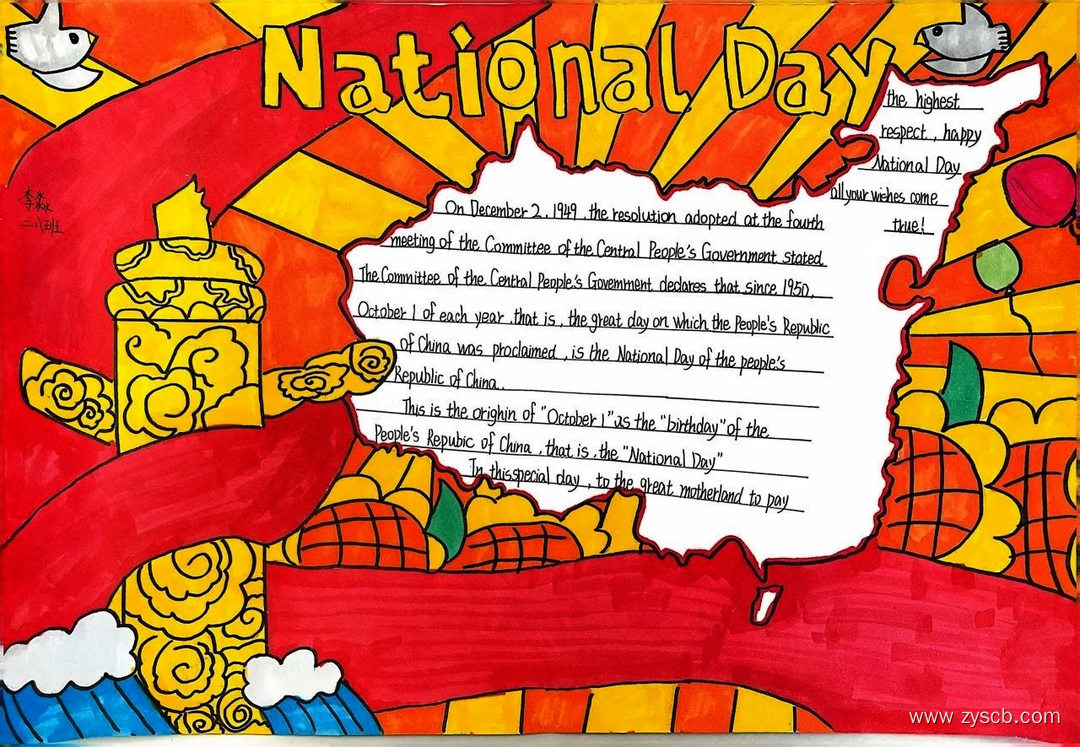 National Day
李淼
二八班
On December 2, 1949, the resolution adopted at the fourth
meeting of the Committee of the Central People's Government stated
The Committee of the Central People's Government declares that since 1950,
October 1 of each year, that is, the great day on which the People's Republic
of China was proclaimed, is the National Day of the people's
Republic of China.
This is the orighin of "October 1" as the "birthday" of the
People's Repubic of China, that is, the "National Day"
In this special day, to the great motherland to pay
the highest
respect, happy
National Day
all your wishes come
true!
www.zyscb.com